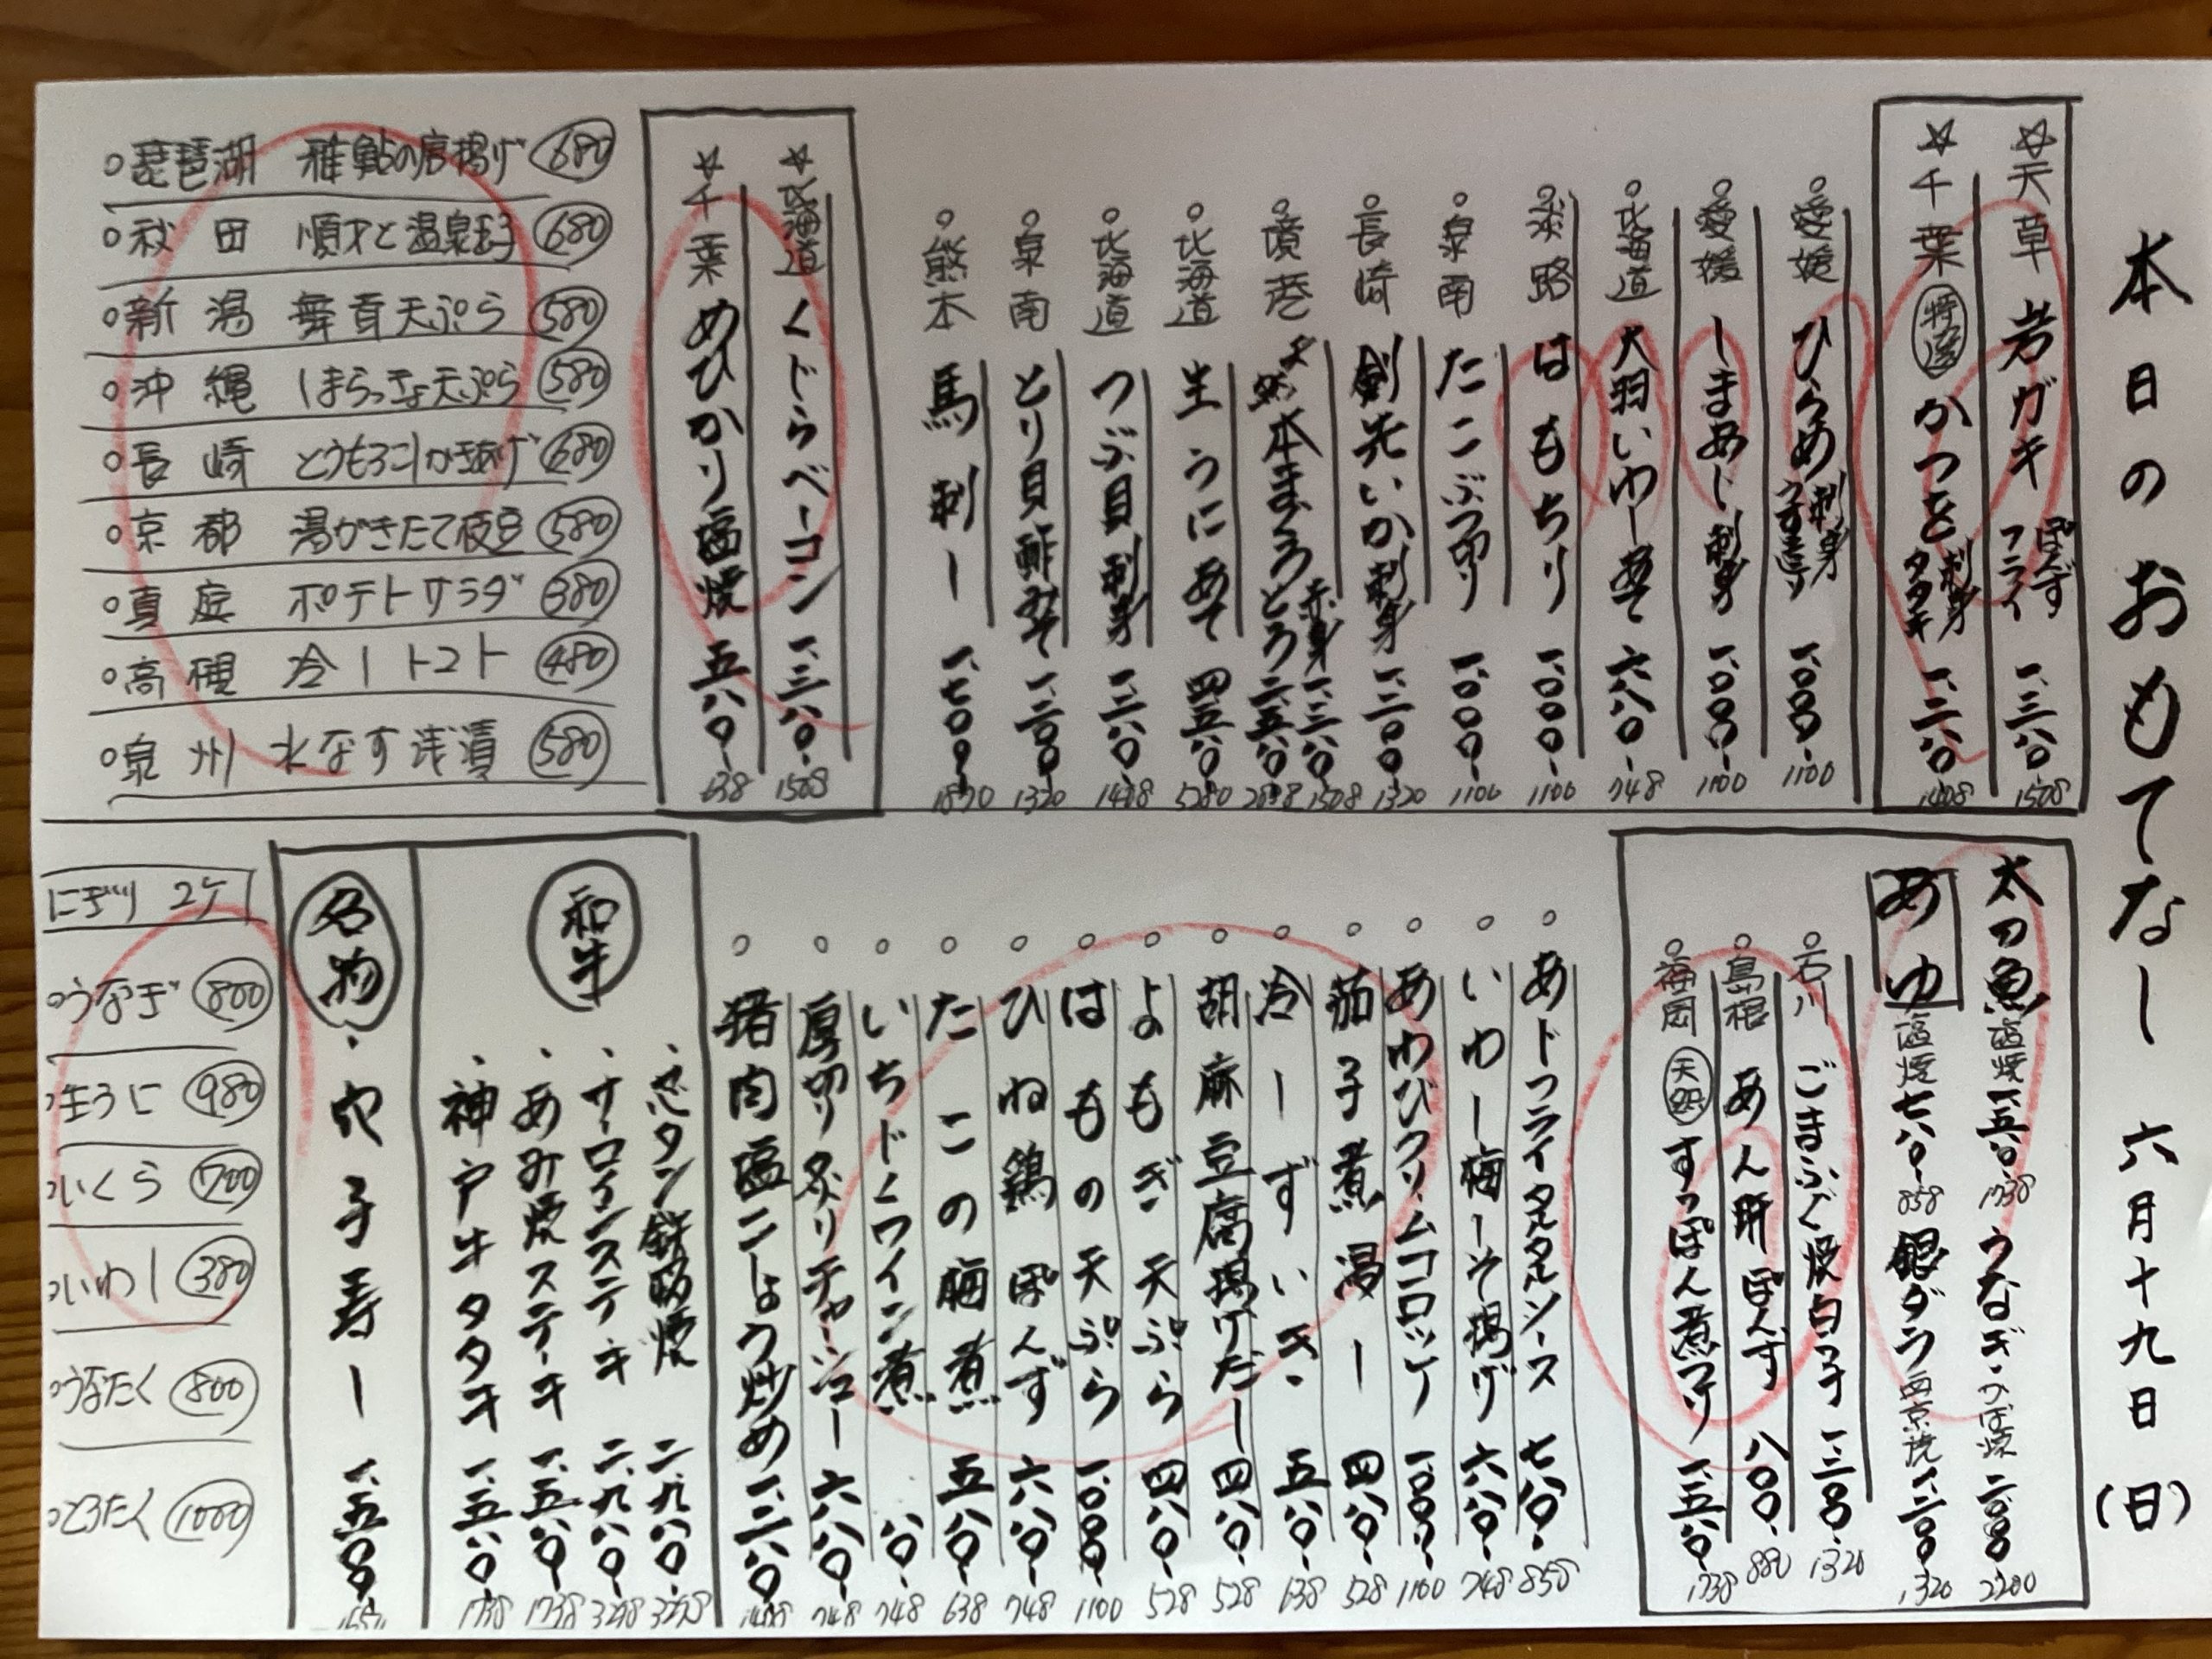 本日のおもてなし 六月十九日(日)
☆天草 岩ガキ ぽんず フライ 一、三八〇 1508
☆千葉 特選 かつを 刺身 タタキ 一、二八〇 1408
○愛媛 ひらめ 刺身 うす造り 一、〇〇〇 1100
○愛媛 しまあじ刺身 一、〇〇〇 1100
○北海道 大羽いわしあて 六八〇 748
○淡路 はもちり 一、〇〇〇 1100
○泉南 たこぶつ切り 一、〇〇〇 1100
○長崎 剣先いか刺身 一、二〇〇 1320
○境港 天然本まぐろ 赤身 一、三八〇 1508 とろ 二、五八〇
○北海道 生うにあて 四、八〇〇 5280
○北海道 つぶ貝刺身 一、二八〇 1408
○泉南 とり貝酢みそ 一、二〇〇 1320
○熊本 馬刺し 一、七〇〇 1870
☆北海道 くじらベーコン 一、三八〇 1508
☆千葉 めひかり塩焼 五八〇 638
○琵琶湖 稚鮎の唐揚げ 680
○秋田 順才と温泉玉子 680
○新潟 舞茸天ぷら 580
○沖縄 しまらっきょ天ぷら 580
○長崎 とうもろこしかきあげ 680
○京都 湯がきたて枝豆 580
○真庭 ポテトサラダ 380
○高槻 冷しトマト 480
○泉州 水なす浅漬 580
太刀魚 塩焼 一、五八〇 1738 うなぎ・つぼ焼 二、〇〇〇 2200
あゆ 塩焼 七八〇 858 銀ダラ 西京焼 一、二〇〇 1320
○石川 ごまふぐ焼白子 一、二〇〇 1320
○島根 あん肝ぽんず 八〇〇 880
○福岡 天然 すっぽん煮つけ 一、五八〇 1738
○あじフライタルタルソース 七八〇 858
○いわし梅しそ揚げ 六八〇 748
○あわびクリームコロッケ 一、〇〇〇 1100
○茄子煮浸し 四八〇 528
○冷しずいき 五八〇 638
○胡麻豆腐揚げだし 四八〇 528
○よもぎ天ぷら 四八〇 528
○はもの天ぷら 一、〇〇〇 1100
○ひね鶏ぽんず 六八〇 748
○たこの梅煮 五八〇 638
○いちじくワイン煮 748
○厚切り炙りチャーシュー 六八〇 748
○猪肉塩こしょう炒め 一、二八〇 1408
和牛
、芯タン鉄板焼 二、九八〇 3278
、サーロインステーキ 二、九八〇 3278
、あみ焼ステーキ 一、五八〇 1738
、神戸牛タタキ 一、五八〇 1738
名物、穴子寿し 一、五〇〇
にぎり 2ケ
○うなぎ 800
○生うに 980
○いくら 700
○いわし 380
○うなたく 800
○とろたく 1000